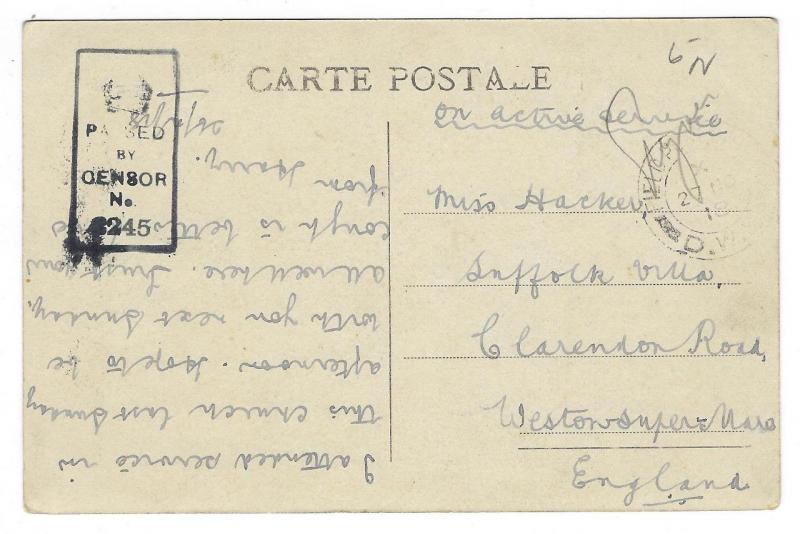 CARTE POSTALE
PASSED
BY
CENSOR
No.
2245
On active service
Miss Hacker,
Suffolk Villa,
Clarendon Road,
Weston super= Mare
England
I attended service in
this church last Sunday
afternoon. Hope to be
with you next Sunday.
all well here. Trust your
cough is better
from Harry.